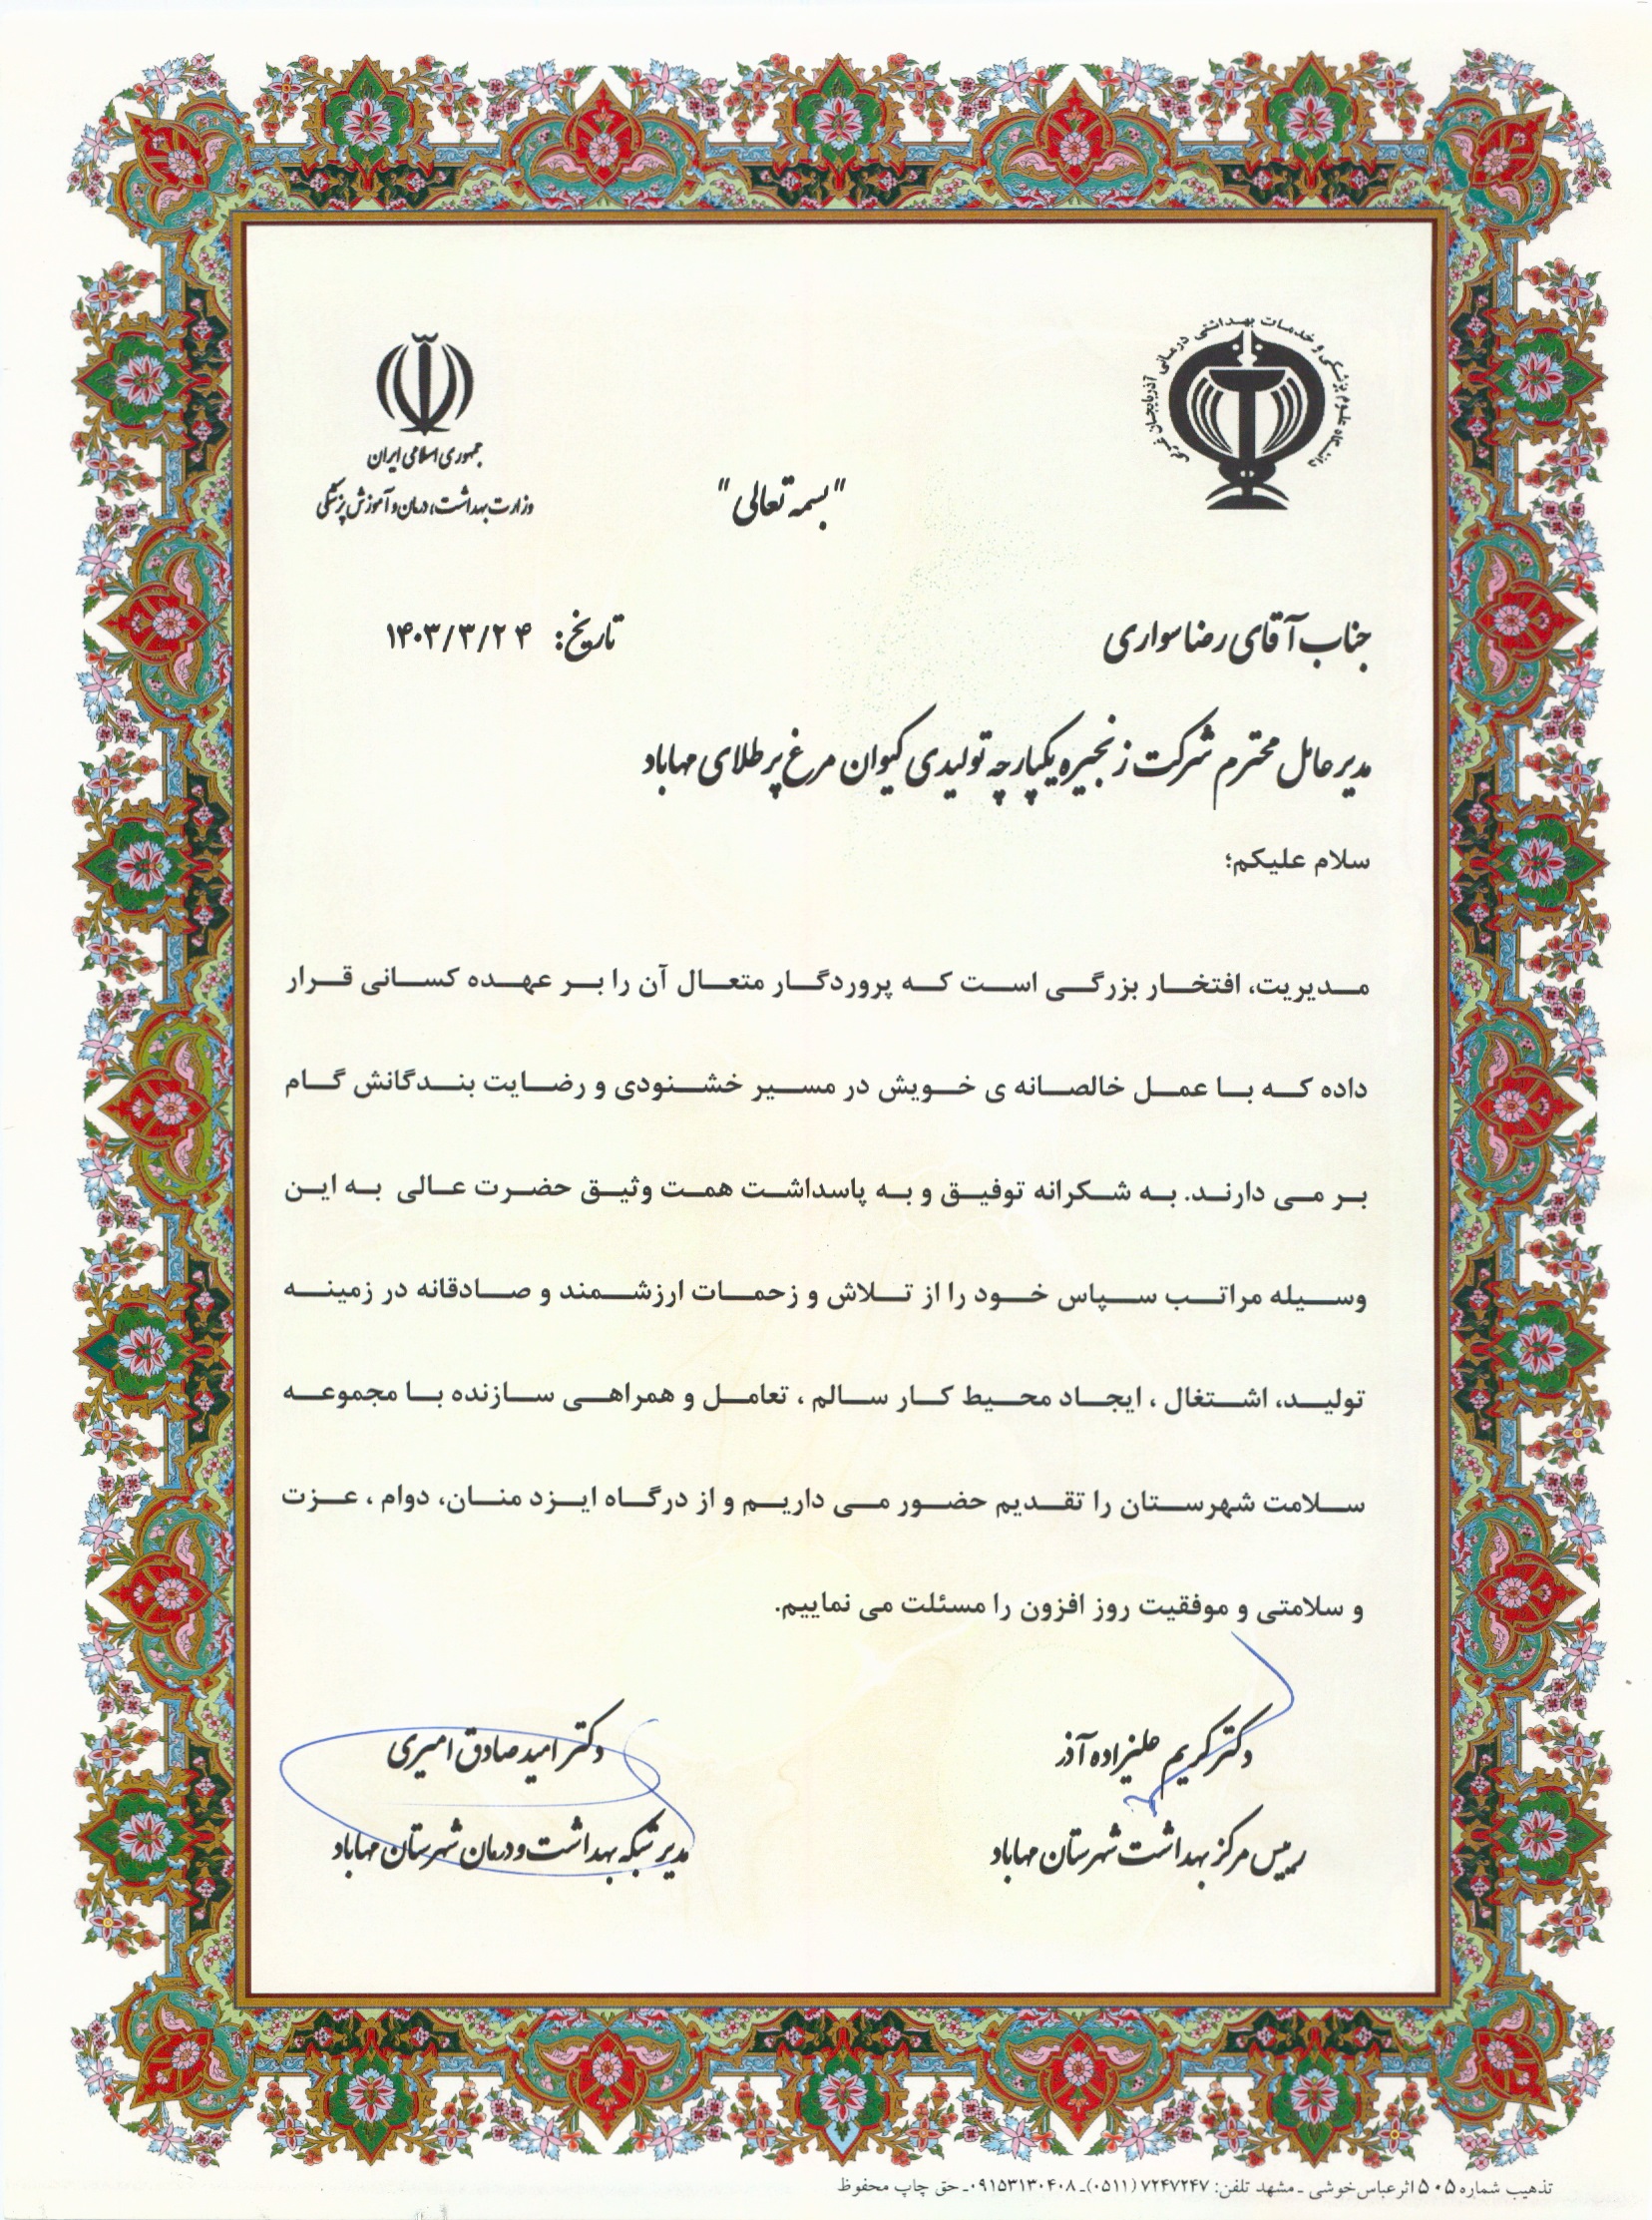 دانشگاه علوم پزشکی و خدمات بهداشتی درمانی آذربایجان غربی
جمهوری اسلامی ایران
وزارت بهداشت، درمان و آموزش پزشکی
"بسمه تعالی"
جناب آقای رضا سواری
تاریخ: ۱۴۰۳/۳/۲۴
مدیر عامل محترم شرکت زنجیره یکپارچه تولیدی کیوان مرغ پر طلای مهاباد
سلام علیکم؛
مدیریت، افتخار بزرگی است که پروردگار متعال آن را بر عهده کسانی قرار
داده که با عمل خالصانه ی خویش در مسیر خشنودی و رضایت بندگانش گام
بر می دارند. به شکرانه توفیق و به پاسداشت همت وثیق حضرت عالی به این
وسیله مراتب سپاس خود را از تلاش و زحمات ارزشمند و صادقانه در زمینه
تولید، اشتغال ، ایجاد محیط کار سالم ، تعامل و همراهی سازنده با مجموعه
سلامت شهرستان را تقدیم حضور می داریم و از درگاه ایزد منان، دوام ، عزت
و سلامتی و موفقیت روز افزون را مسئلت می نماییم.
دکتر کریم علیزاده آذر
رییس مرکز بهداشت شهرستان مهاباد
دکتر امید صادق امیری
مدیر شبکه بهداشت و درمان شهرستان مهاباد
تذهیب شماره ۵۰۵ اثر عباس خوشی ـ مشهد تلفن: ۷۲۴۷۲۴۷ (۰۵۱۱)ـ ۰۹۱۵۳۱۳۰۴۰۸ـ حق چاپ محفوظ